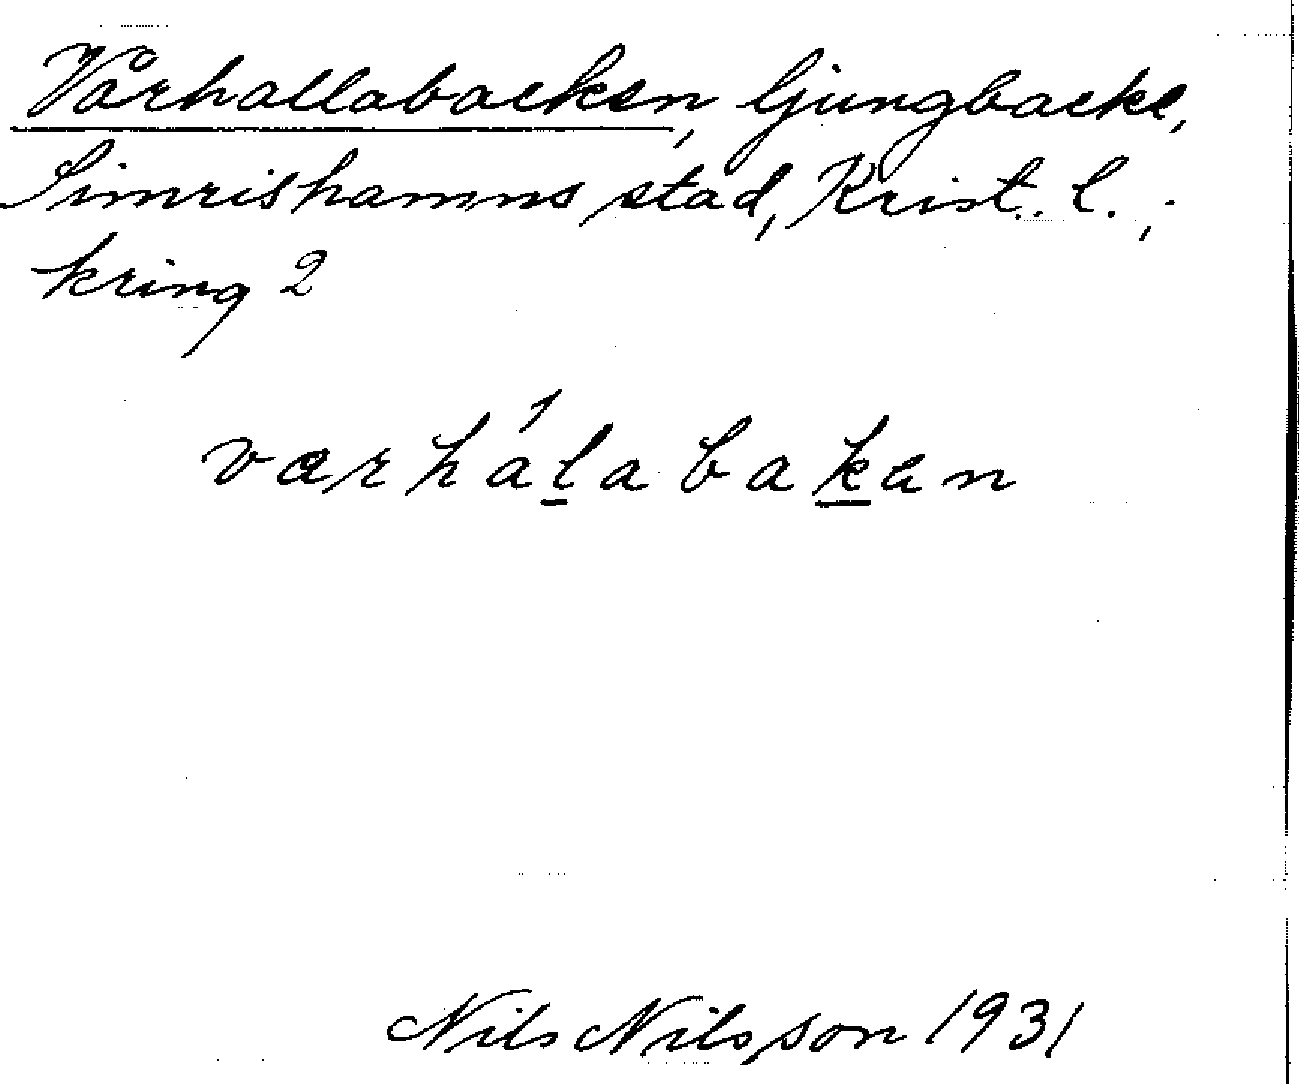 Vårhallabacken, ljungbacke,
Simrishamns stad, Krist. l.,
kring 2
varhálabakan
Nils Nilsson 1931